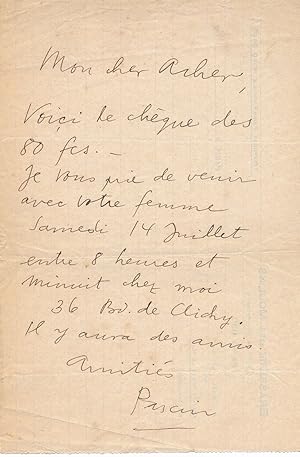 Mon cher Acher,
Voiçi le chèque des
80 fcs. —
Je vous prie de venir
avec votre femme
Samedi 14 Juillet
entre 8 heures et
minuit chez moi
36 Bd. de Clichy.
Il y aura des amis.
Amitiés
Pascin